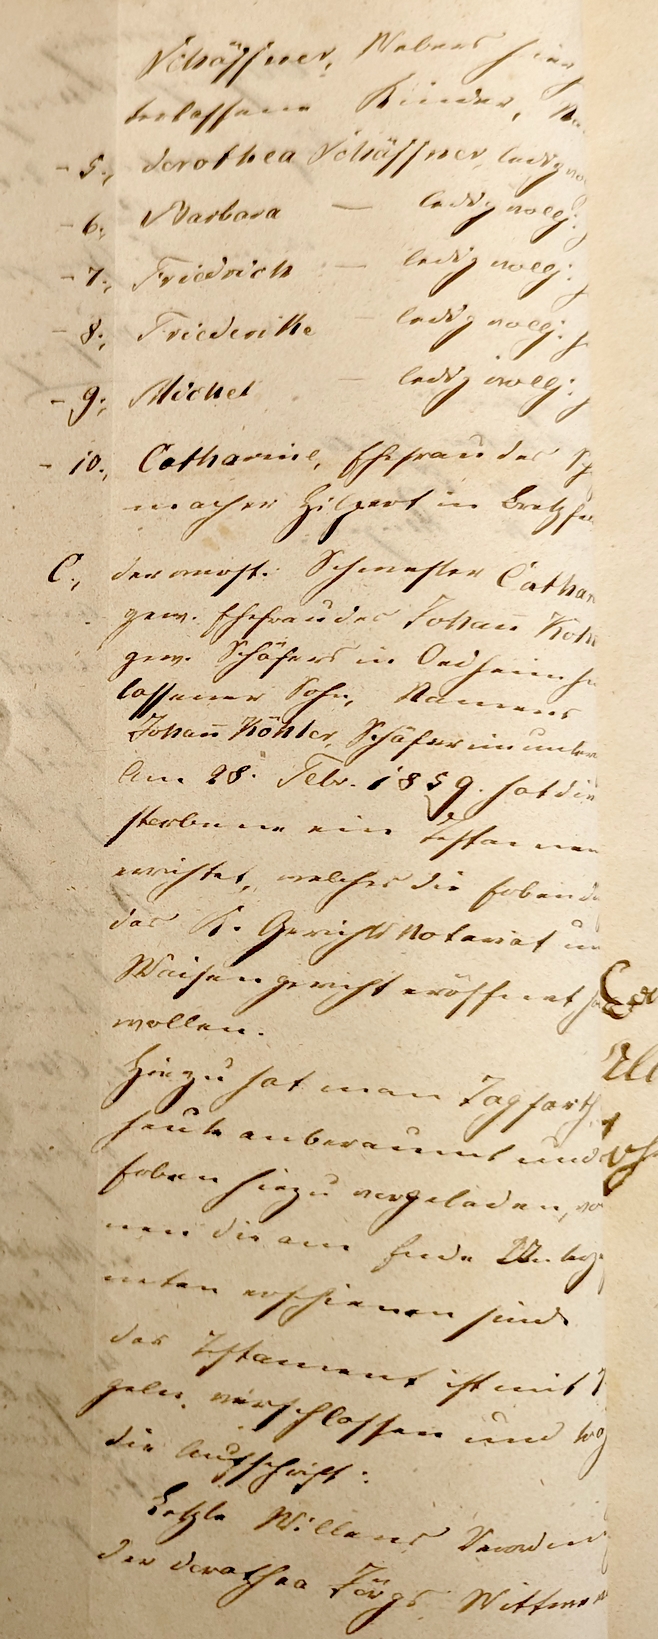 Schäffner, Webers hin
terlassene Kinder, N
- 5., Dorothea Schäffner, ledig vo
- 6., Barbara — ledig vollj.
- 7., Friedrich — ledig vollj.
- 8., Friederike — ledig vollj.
- 9., Michel — ledig vollj.
- 10., Catharine, Ehefrau des Sch
macher Hilpert in Bretzfe
C., der verst. Schwester Cathar
gew. Ehefrau des Johann Köh
gew. Schäfers in Oedheim hin
lassener Sohn, Namens
Johann Köhler, Schäfer im unter
Am 28. Febr. 1859. hat die
storbene ein Testamen
errichtet, welches die Erben d
das K. Gerichts Notariat un
Waisengericht eröffnet ha
wollen.
Hiezu hat man Tagfarth
heute anberaumt und
Erben hiezu vorgeladen, vo
nen die am Ende Unterze
neten erschienen sind.
Das Testament ist mit
geln verschlossen und
die Aufschrift:
Letzte Willens Verordn
der Dorothea Wittwe